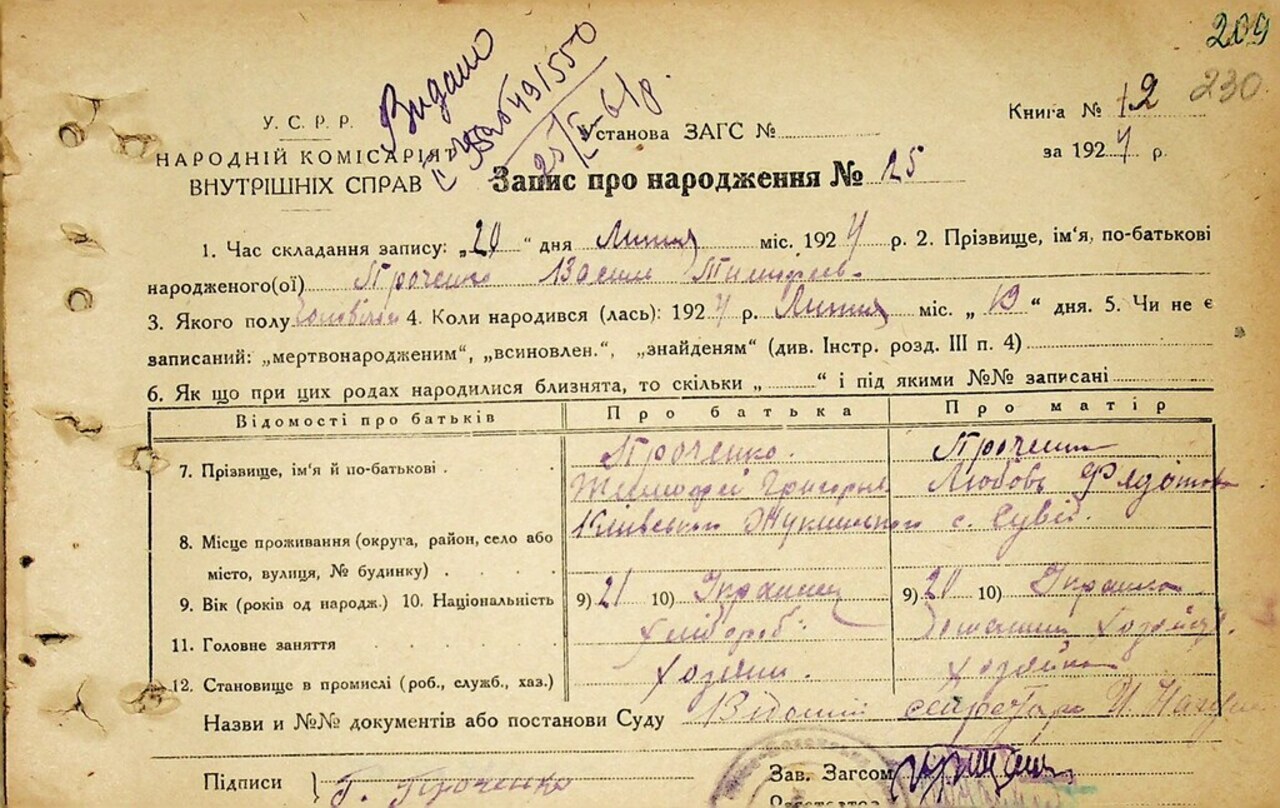 209
Видано
230
Книга № 12
У. С. Р. Р.
Установа ЗАГС №
НАРОДНІЙ КОМІСАРІЯТ
за 1927 р.
ВНУТРІШНІХ СПРАВ
Запис про народження № 25
1. Час складання запису: „20“ дня Липня міс. 1927 р. 2. Прізвище, ім'я, по-батькові
народженого(ої) Проченко Василь Тимофіев.
3. Якого полу чоловічий 4. Коли народився (лась): 1927 р. Липня міс. „13“ дня. 5. Чи не є
записаний: „мертвонародженим“, „всиновлен.“, „знайденям“ (див. Інстр. розд. III п. 4)
6. Як що при цих родах народилися близнята, то скільки „ “ і під якими №№ записані
Відомості про батьків Про батька Про матір
7. Прізвище, ім'я й по-батькові . Проченко. Проченко
Тимофей Григорьев Любовь Федотова
Київського Жукинського с. Сувід.
8. Місце проживання (округа, район, село або
місто, вулиця, № будинку) . . . .
9. Вік (років од народж.) 10. Національність 9) 21 10) Українец 9) 20 10) Українка
11. Головне заняття . . . . . хлібороб. Домашнє
12. Становище в промислі (роб., служб., хаз.) хозяин. хозяйка
Назви и №№ документів або постанови Суду Відомий секретаря
Підписи } Г. Проченко
Зав. Загсом